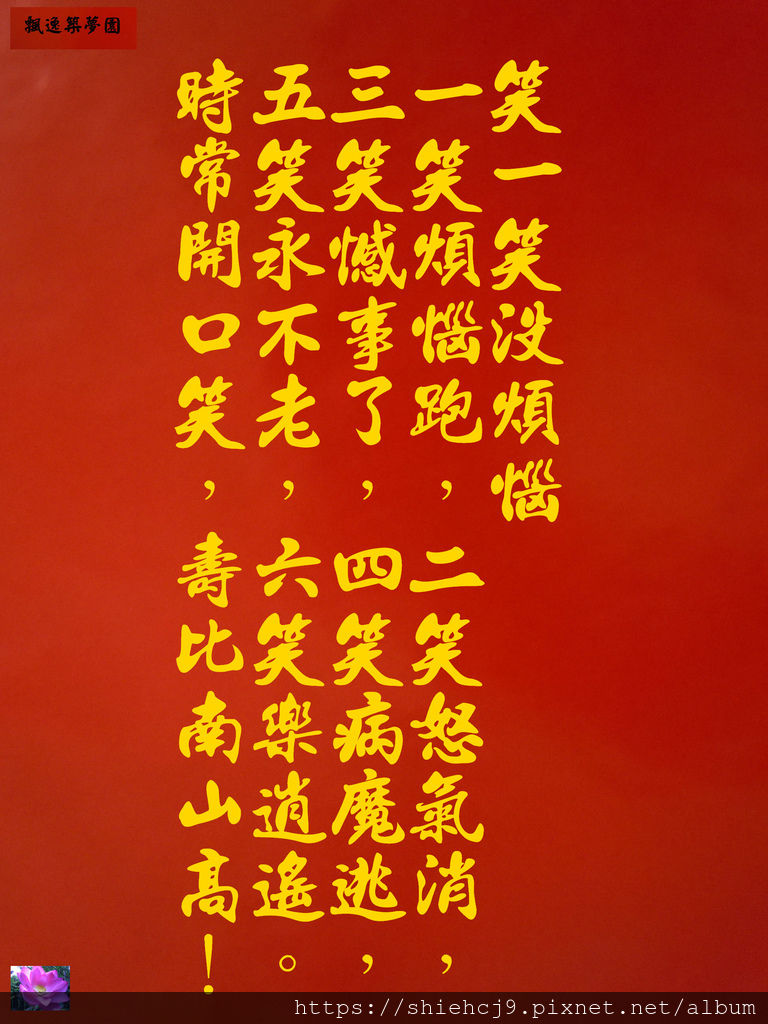 飄逸築夢園
笑一笑沒煩惱
一笑煩惱跑，二笑怒氣消，
三笑憾事了，四笑病魔逃，
五笑永不老，六笑樂逍遙。
時常開口笑，壽比南山高！
https://shiehcj9.pixnet.net/album